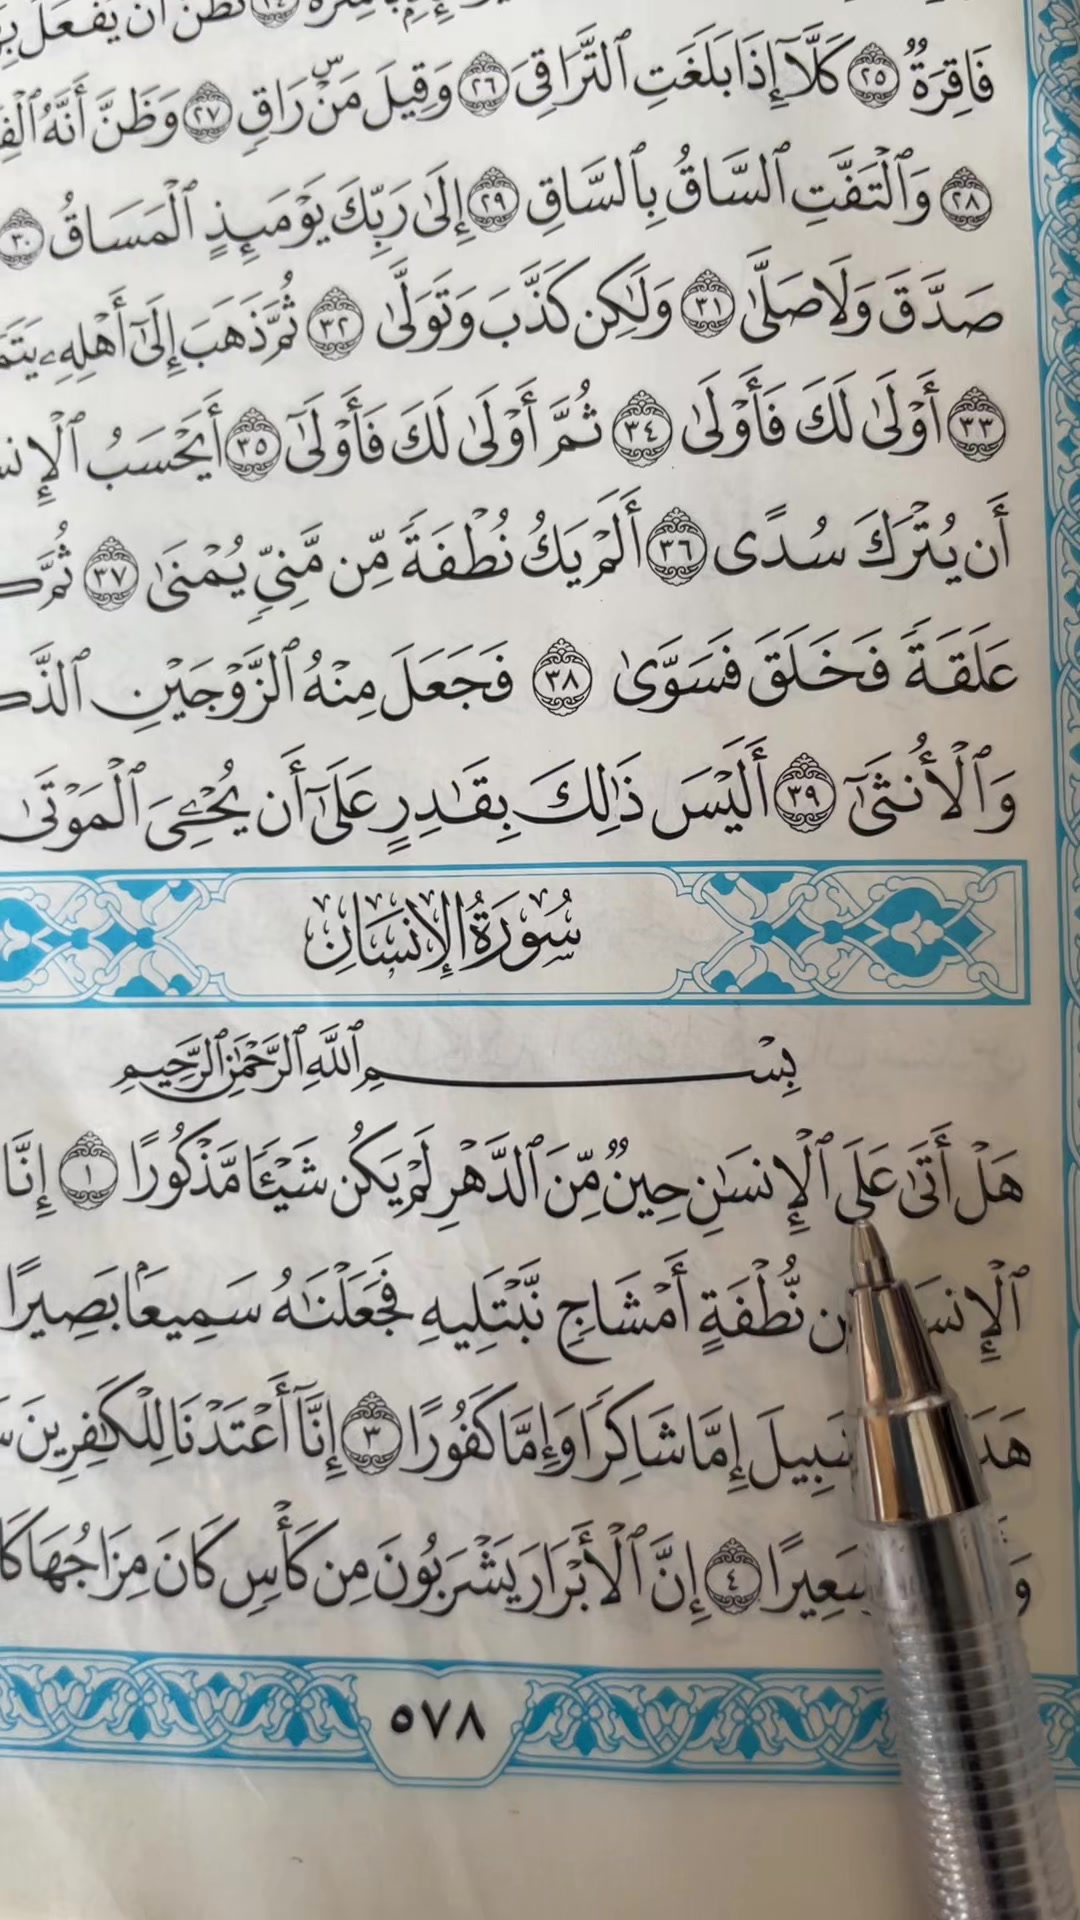 تَظُنُّ أَن يُفْعَلَ
فَاقِرَةٌ ٢٥ كَلَّآ إِذَا بَلَغَتِ ٱلتَّرَاقِيَ ٢٦ وَقِيلَ مَنْۜ رَاقٍ ٢٧ وَظَنَّ أَنَّهُ
٢٨ وَٱلْتَفَّتِ ٱلسَّاقُ بِٱلسَّاقِ ٢٩ إِلَىٰ رَبِّكَ يَوْمَئِذٍ ٱلْمَسَاقُ ٣٠
صَدَّقَ وَلَا صَلَّىٰ ٣١ وَلَٰكِن كَذَّبَ وَتَوَلَّىٰ ٣٢ ثُمَّ ذَهَبَ إِلَىٰٓ أَهْلِهِۦ
٣٣ أَوْلَىٰ لَكَ فَأَوْلَىٰ ٣٤ ثُمَّ أَوْلَىٰ لَكَ فَأَوْلَىٰٓ ٣٥ أَيَحْسَبُ
أَن يُتْرَكَ سُدًى ٣٦ أَلَمْ يَكُ نُطْفَةً مِّن مَّنِيٍّ يُمْنَىٰ ٣٧
عَلَقَةً فَخَلَقَ فَسَوَّىٰ ٣٨ فَجَعَلَ مِنْهُ ٱلزَّوْجَيْنِ
وَٱلْأُنثَىٰٓ ٣٩ أَلَيْسَ ذَٰلِكَ بِقَٰدِرٍ عَلَىٰٓ أَن يُحْـِۧيَ ٱلْمَوْتَىٰ
سُورَةُ الإِنسَانِ
بِسْمِ ٱللَّهِ ٱلرَّحْمَٰنِ ٱلرَّحِيمِ
هَلْ أَتَىٰ عَلَى ٱلْإِنسَٰنِ حِينٌ مِّنَ ٱلدَّهْرِ لَمْ يَكُن شَيْـًٔا مَّذْكُورًا ١ إِنَّا
نُّطْفَةٍ أَمْشَاجٍ نَّبْتَلِيهِ فَجَعَلْنَٰهُ سَمِيعًۢا بَصِيرًا
إِمَّا شَاكِرًا وَإِمَّا كَفُورًا ٣ إِنَّآ أَعْتَدْنَا لِلْكَٰفِرِينَ
٤ إِنَّ ٱلْأَبْرَارَ يَشْرَبُونَ مِن كَأْسٍ كَانَ مِزَاجُهَا
٥٧٨